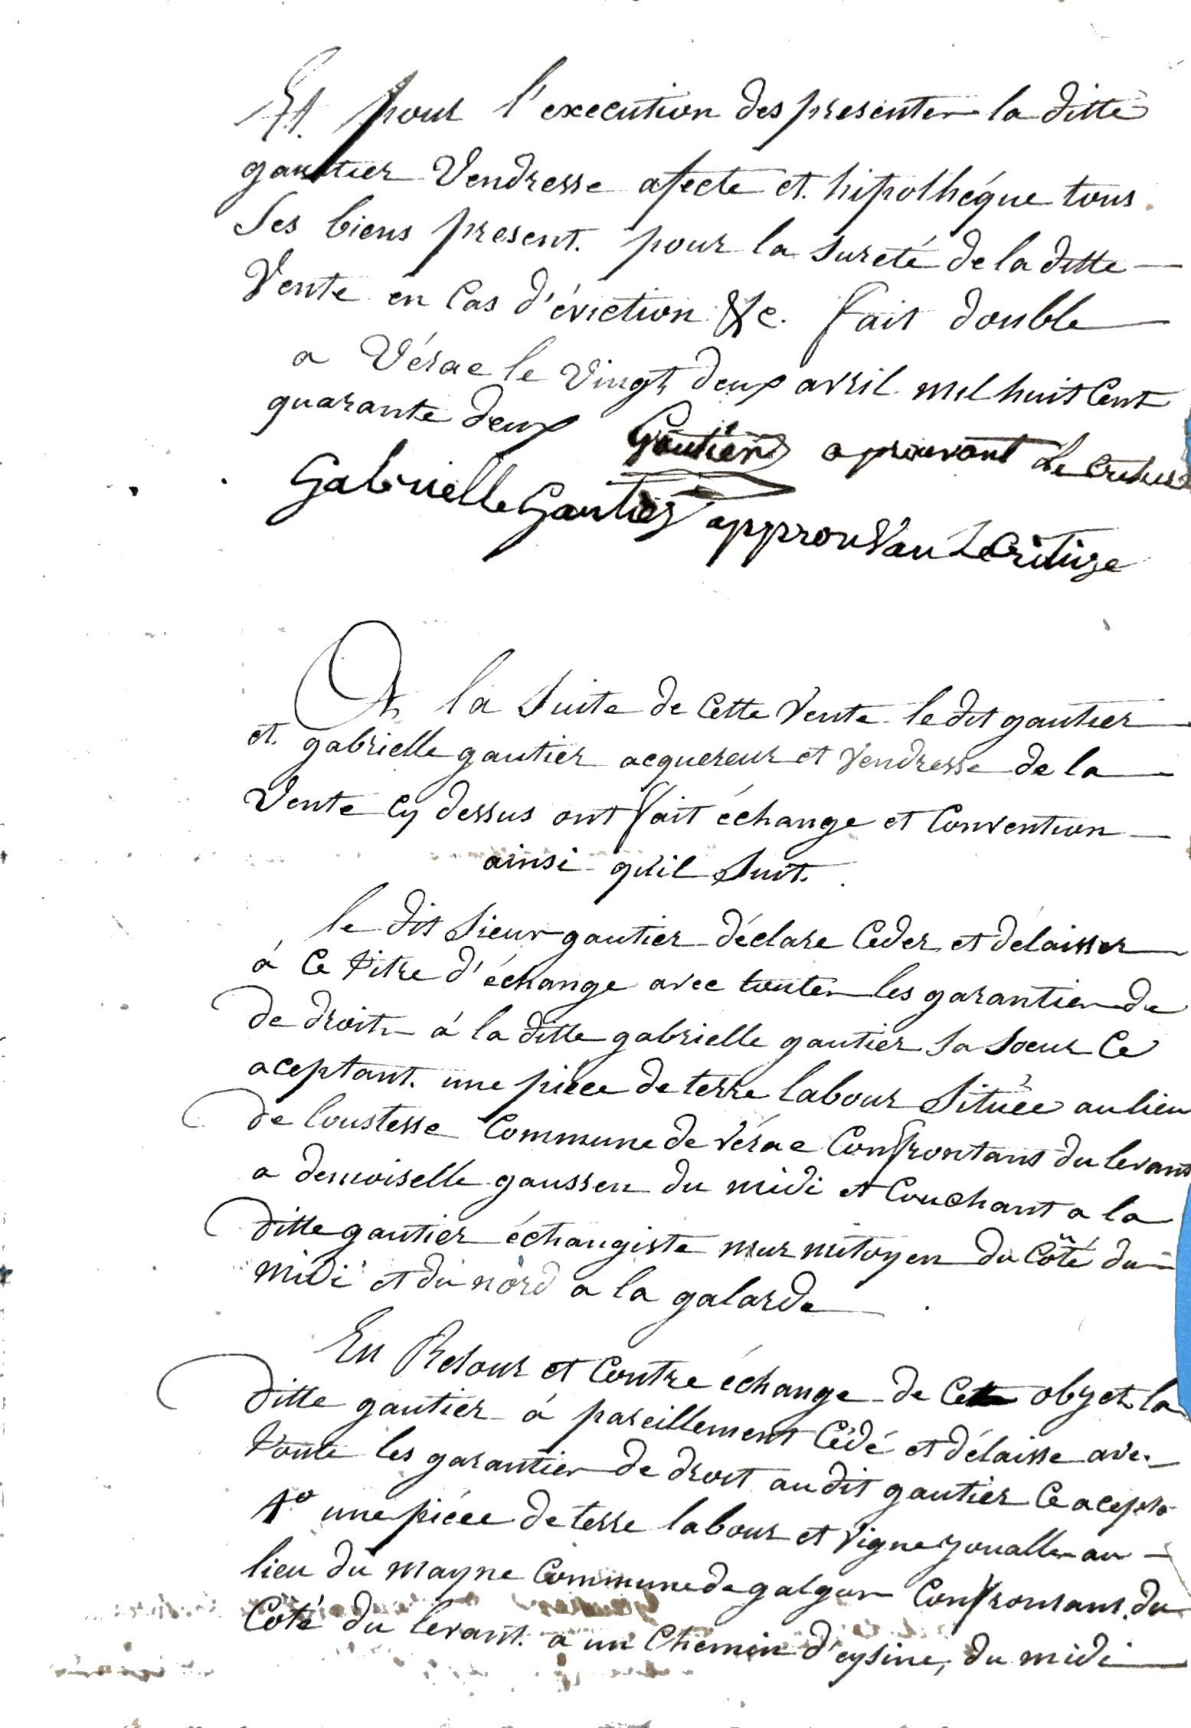 Et pour l'execution des presentes la ditte
gautier Vendresse afecte et hipothéque tous
Ses biens present. pour la sureté de la ditte
Vente en Cas d'éviction &c. fait double
a Vérac le Vingt deux avril mil huit Cent
quarante deux Gautier aprouvant
Gabrielle Gautier approuvan Lecriture
A la Suite de Cette Vente le dit gautier
et gabrielle gautier acquereur et Vendresse de la
Vente Cy dessus ont fait échange et Convention
ainsi qu'il Suit.
le dit Sieur gautier déclare Ceder et délaisser
á Ce titre d'échange avec toutes les garanties de
de droits á la ditte gabrielle gautier Sa Soeur Ce
aceptant. une piéce de terre labour Située au lieu
de Coustesse Commune de Vérac Confrontans du levant
a demoiselle gaussen du midi et Couchant a la
ditte gautier échangiste mur mitoyen du Côté du
midi et du nord a la galarde
En Retour et Contre échange de Cet objet la
ditte gautier á pareillement Cédé et délaisse avec
toute les garanties de droit au dit gautier Ce acept
1º une piéce de terre labour et Vigne joualle au
lieu du mayne Commune de galgon Confrontant du
Côté du levant. a un Chemin d'eysine, du midi